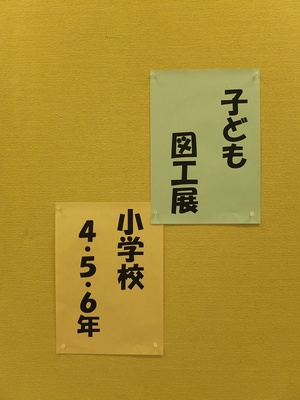 子ども
図工展
小学校
4・5・6年